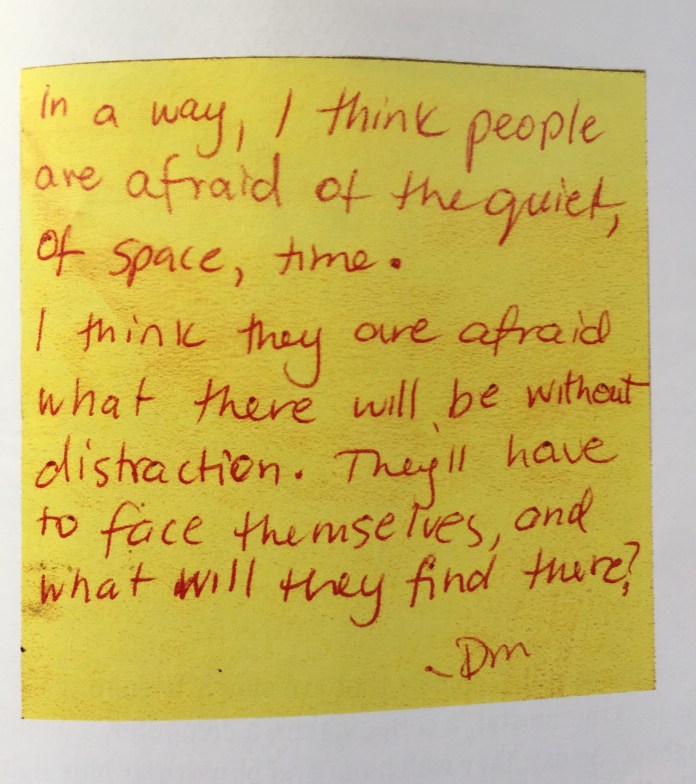 In a way, I think people
are afraid of the quiet,
of space, time.
I think they are afraid
what there will be without
distraction. They'll have
to face themselves, and
what will they find there?
-Dm